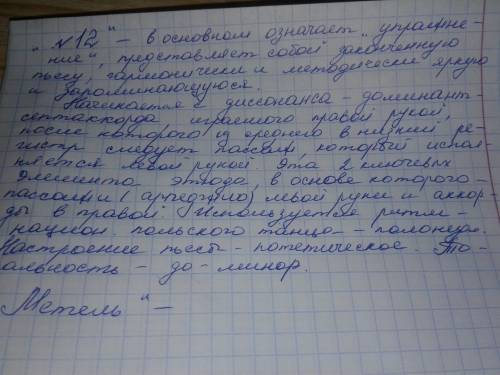 „№12" – в основном означает „упражне-
ние", представляет собой законченную
пьесу, гармонически и методически яркую
и запоминающуюся.
Начинается с диссонанса – доминант-
септаккорда играемого правой рукой,
после которого из среднего в нижний ре-
гистр следует пассаж который испол-
няется левой рукой. Эта 2 ключевых
элемента этюда, в основе которого –
пассажи (арпеджио) левой руки и аккор-
ды в правой. Используется ритм –
польского танца – полонез.
Настроение пьесы – потетическое. То-
альность – до – минор.
Метель" –